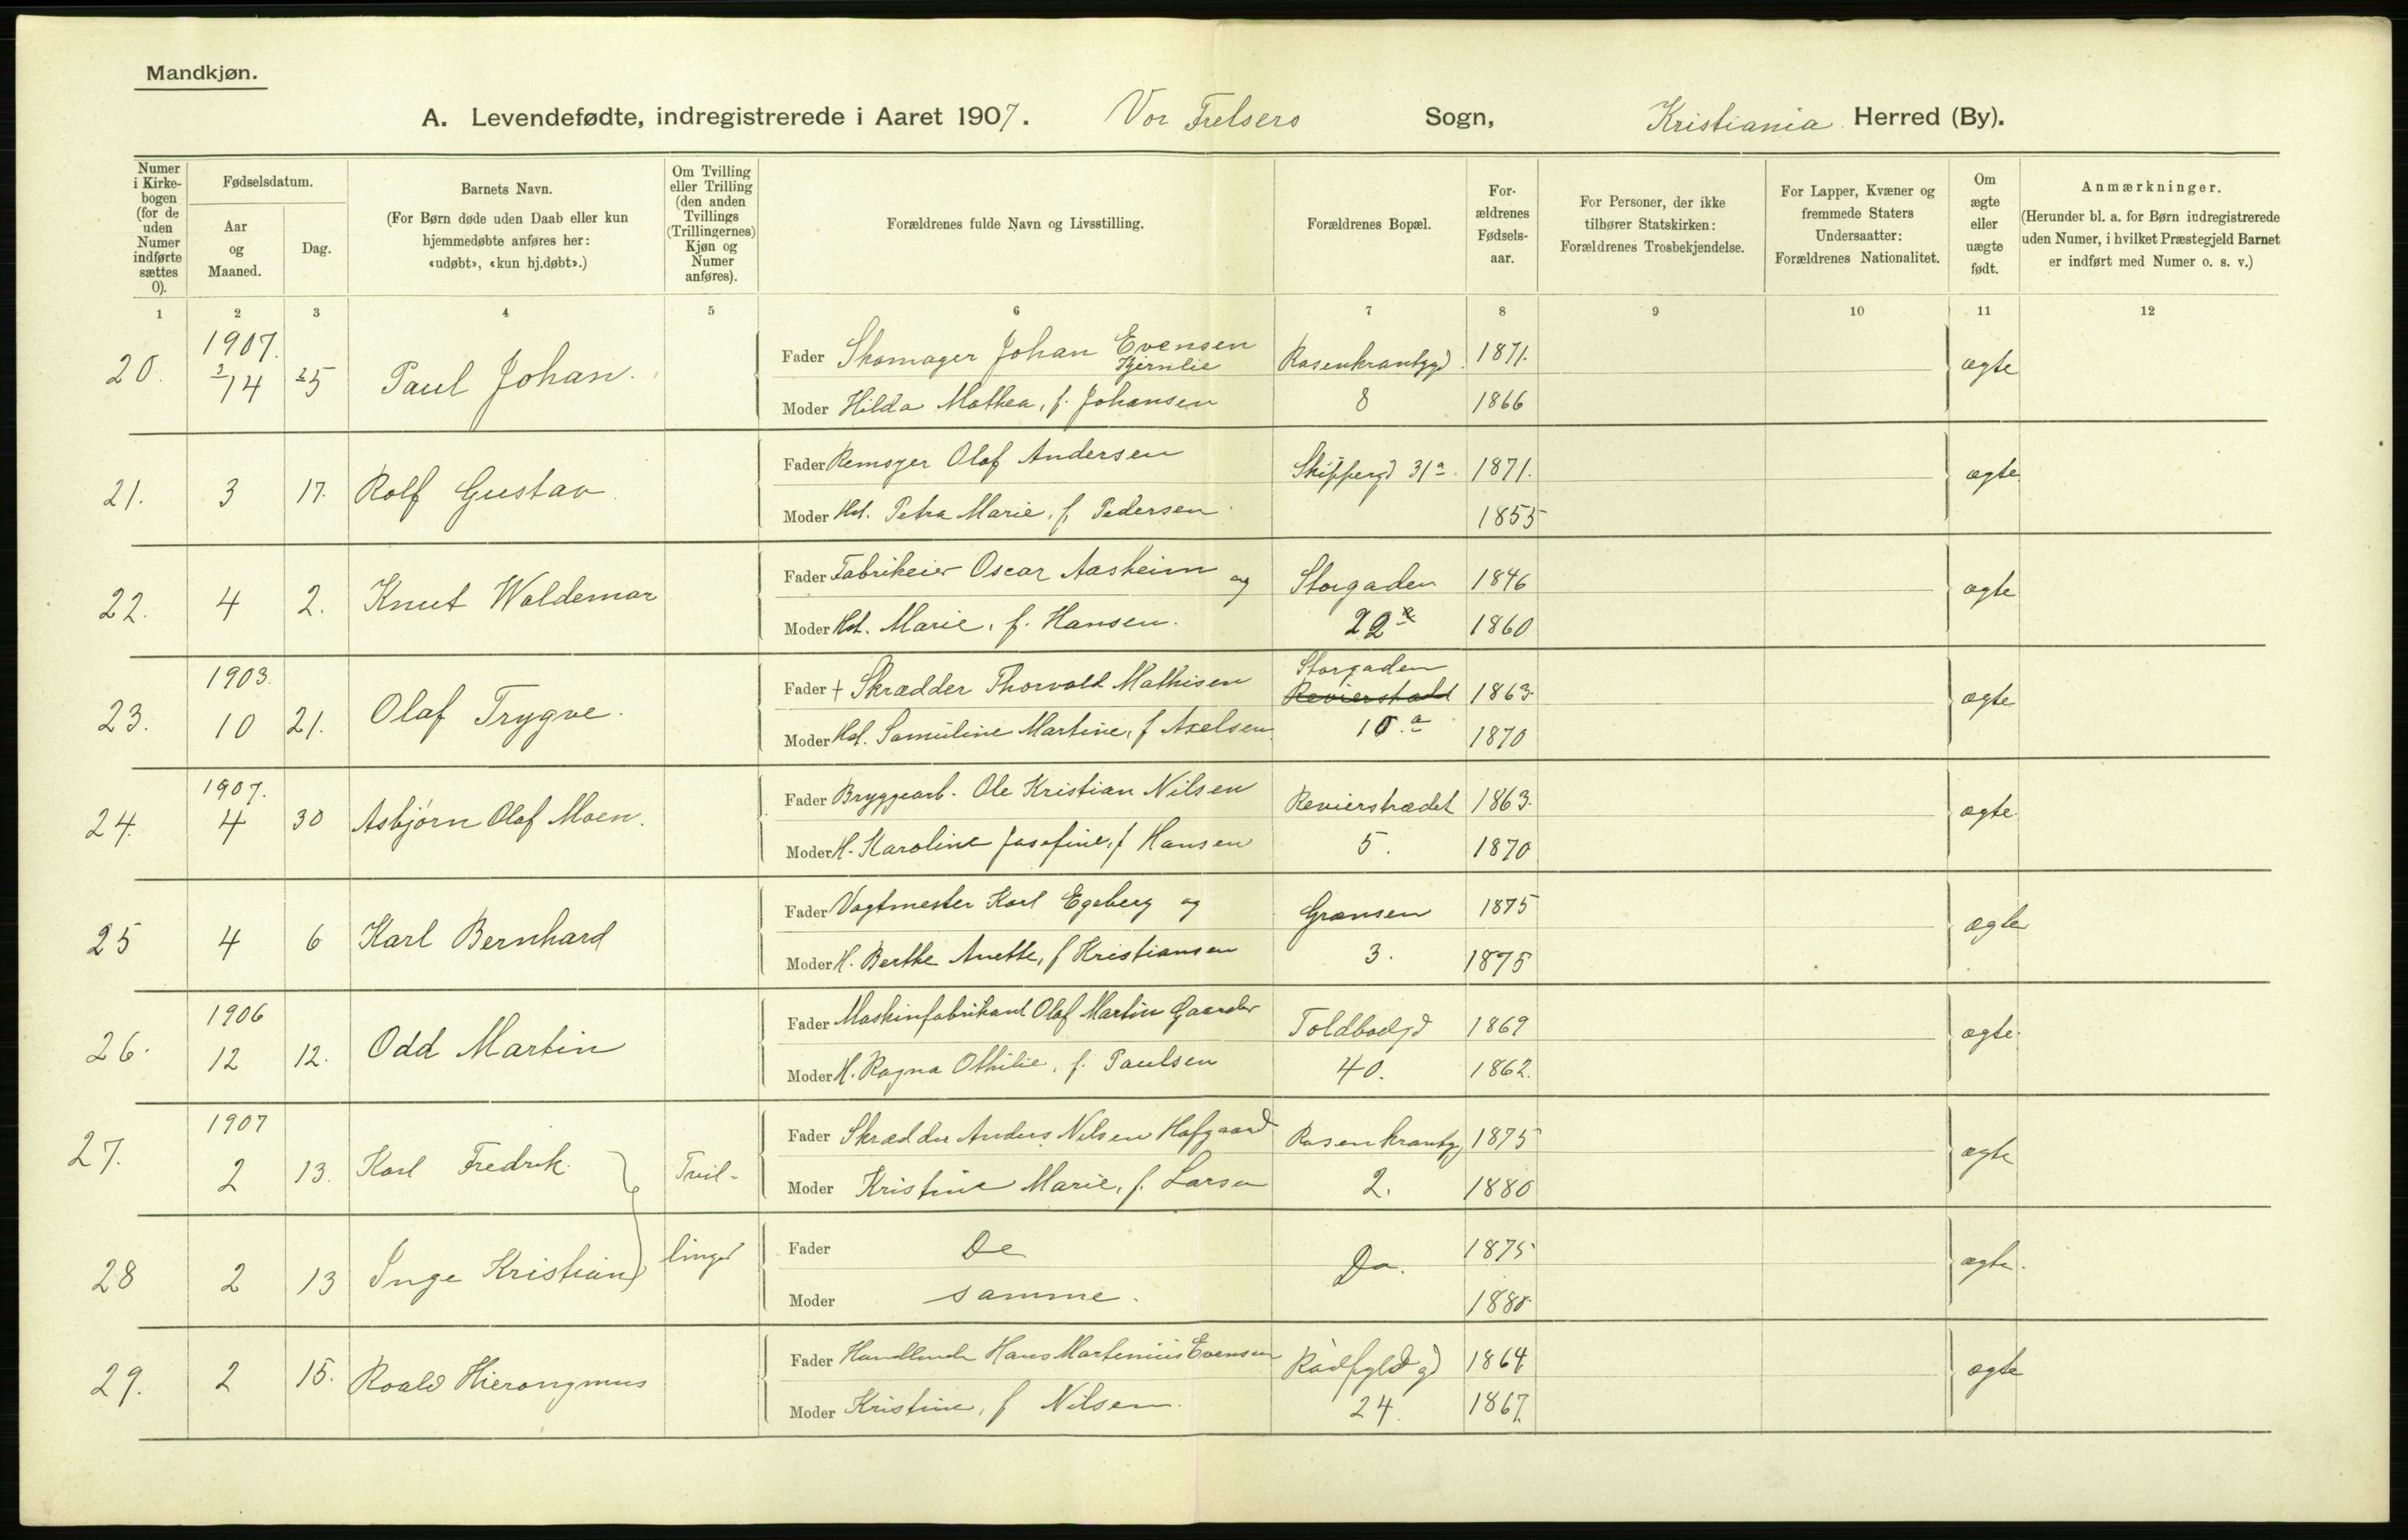 Mandkjøn.
A. Levendefødte, indregistrerede i Aaret 1907. Vor Frelsers Sogn, Kristiania Herred (By).
Numer i Kirkebogen (for de uden Numer indførte sættes 0).
Fødselsdatum.
Aar og Maaned.
Dag.
Barnets Navn.
(For Børn døde uden Daab eller kun hjemmedøbte anføres her: «udøbt», «kun hj.døbt».)
Om Tvilling eller Trilling (den anden Tvillings (Trillingernes) Kjøn og Numer anføres).
Forældrenes fulde Navn og Livsstilling.
Forældrenes Bopæl.
Forældrenes Fødselsaar.
For Personer, der ikke tilhører Statskirken: Forældrenes Trosbekjendelse.
For Lapper, Kvæner og fremmede Staters Undersaatter: Forældrenes Nationalitet.
Om ægte eller uægte født.
Anmærkninger.
(Herunder bl. a. for Børn indregistrerede uden Numer, i hvilket Præstegjeld Barnet er indført med Numer o. s. v.)
1 2 3 4 5 6 7 8 9 10 11 12
1907.
20. 25 Paul Johan. Fader Skomager Johan Evensen Bjernlie Rosenkrantzgd. 1871. ægte
Moder Hilda Mathea, f. Johansen 8 1866
21. 3 17. Rolf Gustav Fader Remsyer Olaf Andersen Skippergd 31a. 1871. ægte
Moder Hst. Petra Marie, f. Pedersen 1855
22. 4 2. Knut Waldemar Fader Fabrikeier Oscar Aasheim og Storgaden 1846 ægte
Moder Hst. Marie, f. Hansen. 22 1860
1903. Storgaden
23. 10 21. Olaf Trygve. Fader + Skrædder Thorvald Mathisen Revierstrædet 1863. ægte
Moder Hst. Samuline Martine, f Axelsen 10.a 1870
1907.
24. 4 30 Asbjørn Olaf Moen. Fader Bryggearb. Ole Kristian Nilsen Revierstrædet 1863. ægte.
Moder H. Karoline Josefine, f Hansen 5. 1870
25 4 6 Karl Bernhard Fader Vagtmester Karl Egeberg og Grænsen 1875 ægte
Moder H. Berthe Anette, f Kristiansen 3. 1875
1906
26. 12 12. Odd Martin Fader Maskinfabrikant Olaf Martin Gaarder Toldbodgd 1869 ægte.
Moder H. Ragna Othilie, f. Paulsen 40. 1862.
1907
27. 2 13. Karl Fredrik. Tvil- Fader Skrædder Anders Nilsen Hofgaard Rosenkrantzg 1875 ægte
Moder Kristine Marie, f. Larsen 2. 1880
28 2 13 Inge Kristian linger Fader De Do. 1875 ægte.
Moder samme. 1880.
29. 2 15. Roald Hieronymus Fader Handlende Hans Martinius Evensen Rådhusgd 1864 ægte
Moder Kristine, f Nilsen. 24. 1867.